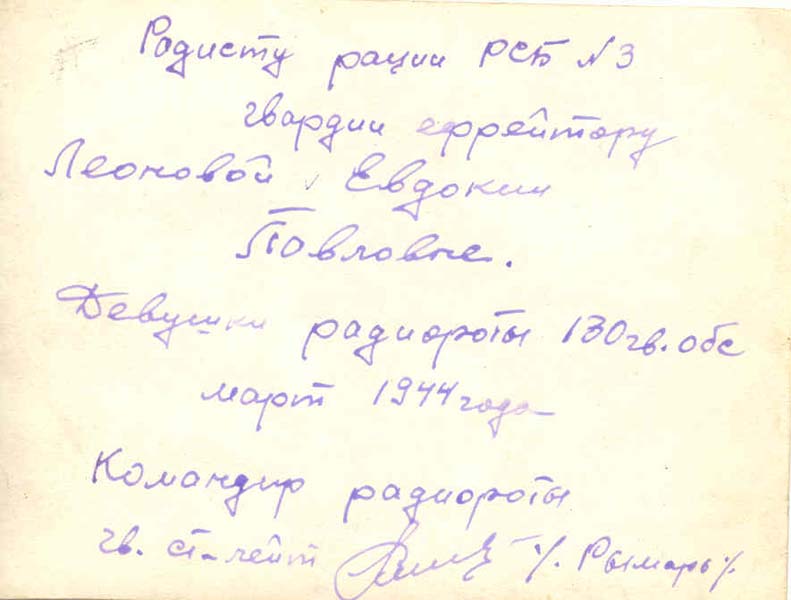 Радисту рации РСБ №3
гвардии ефрейтору
Леоновой Евдокии
Павловне.
Девушки радиороты 130 гв. обс
март 1944 года
Командир радиороты
гв. ст-лейт /. Рымарь /.